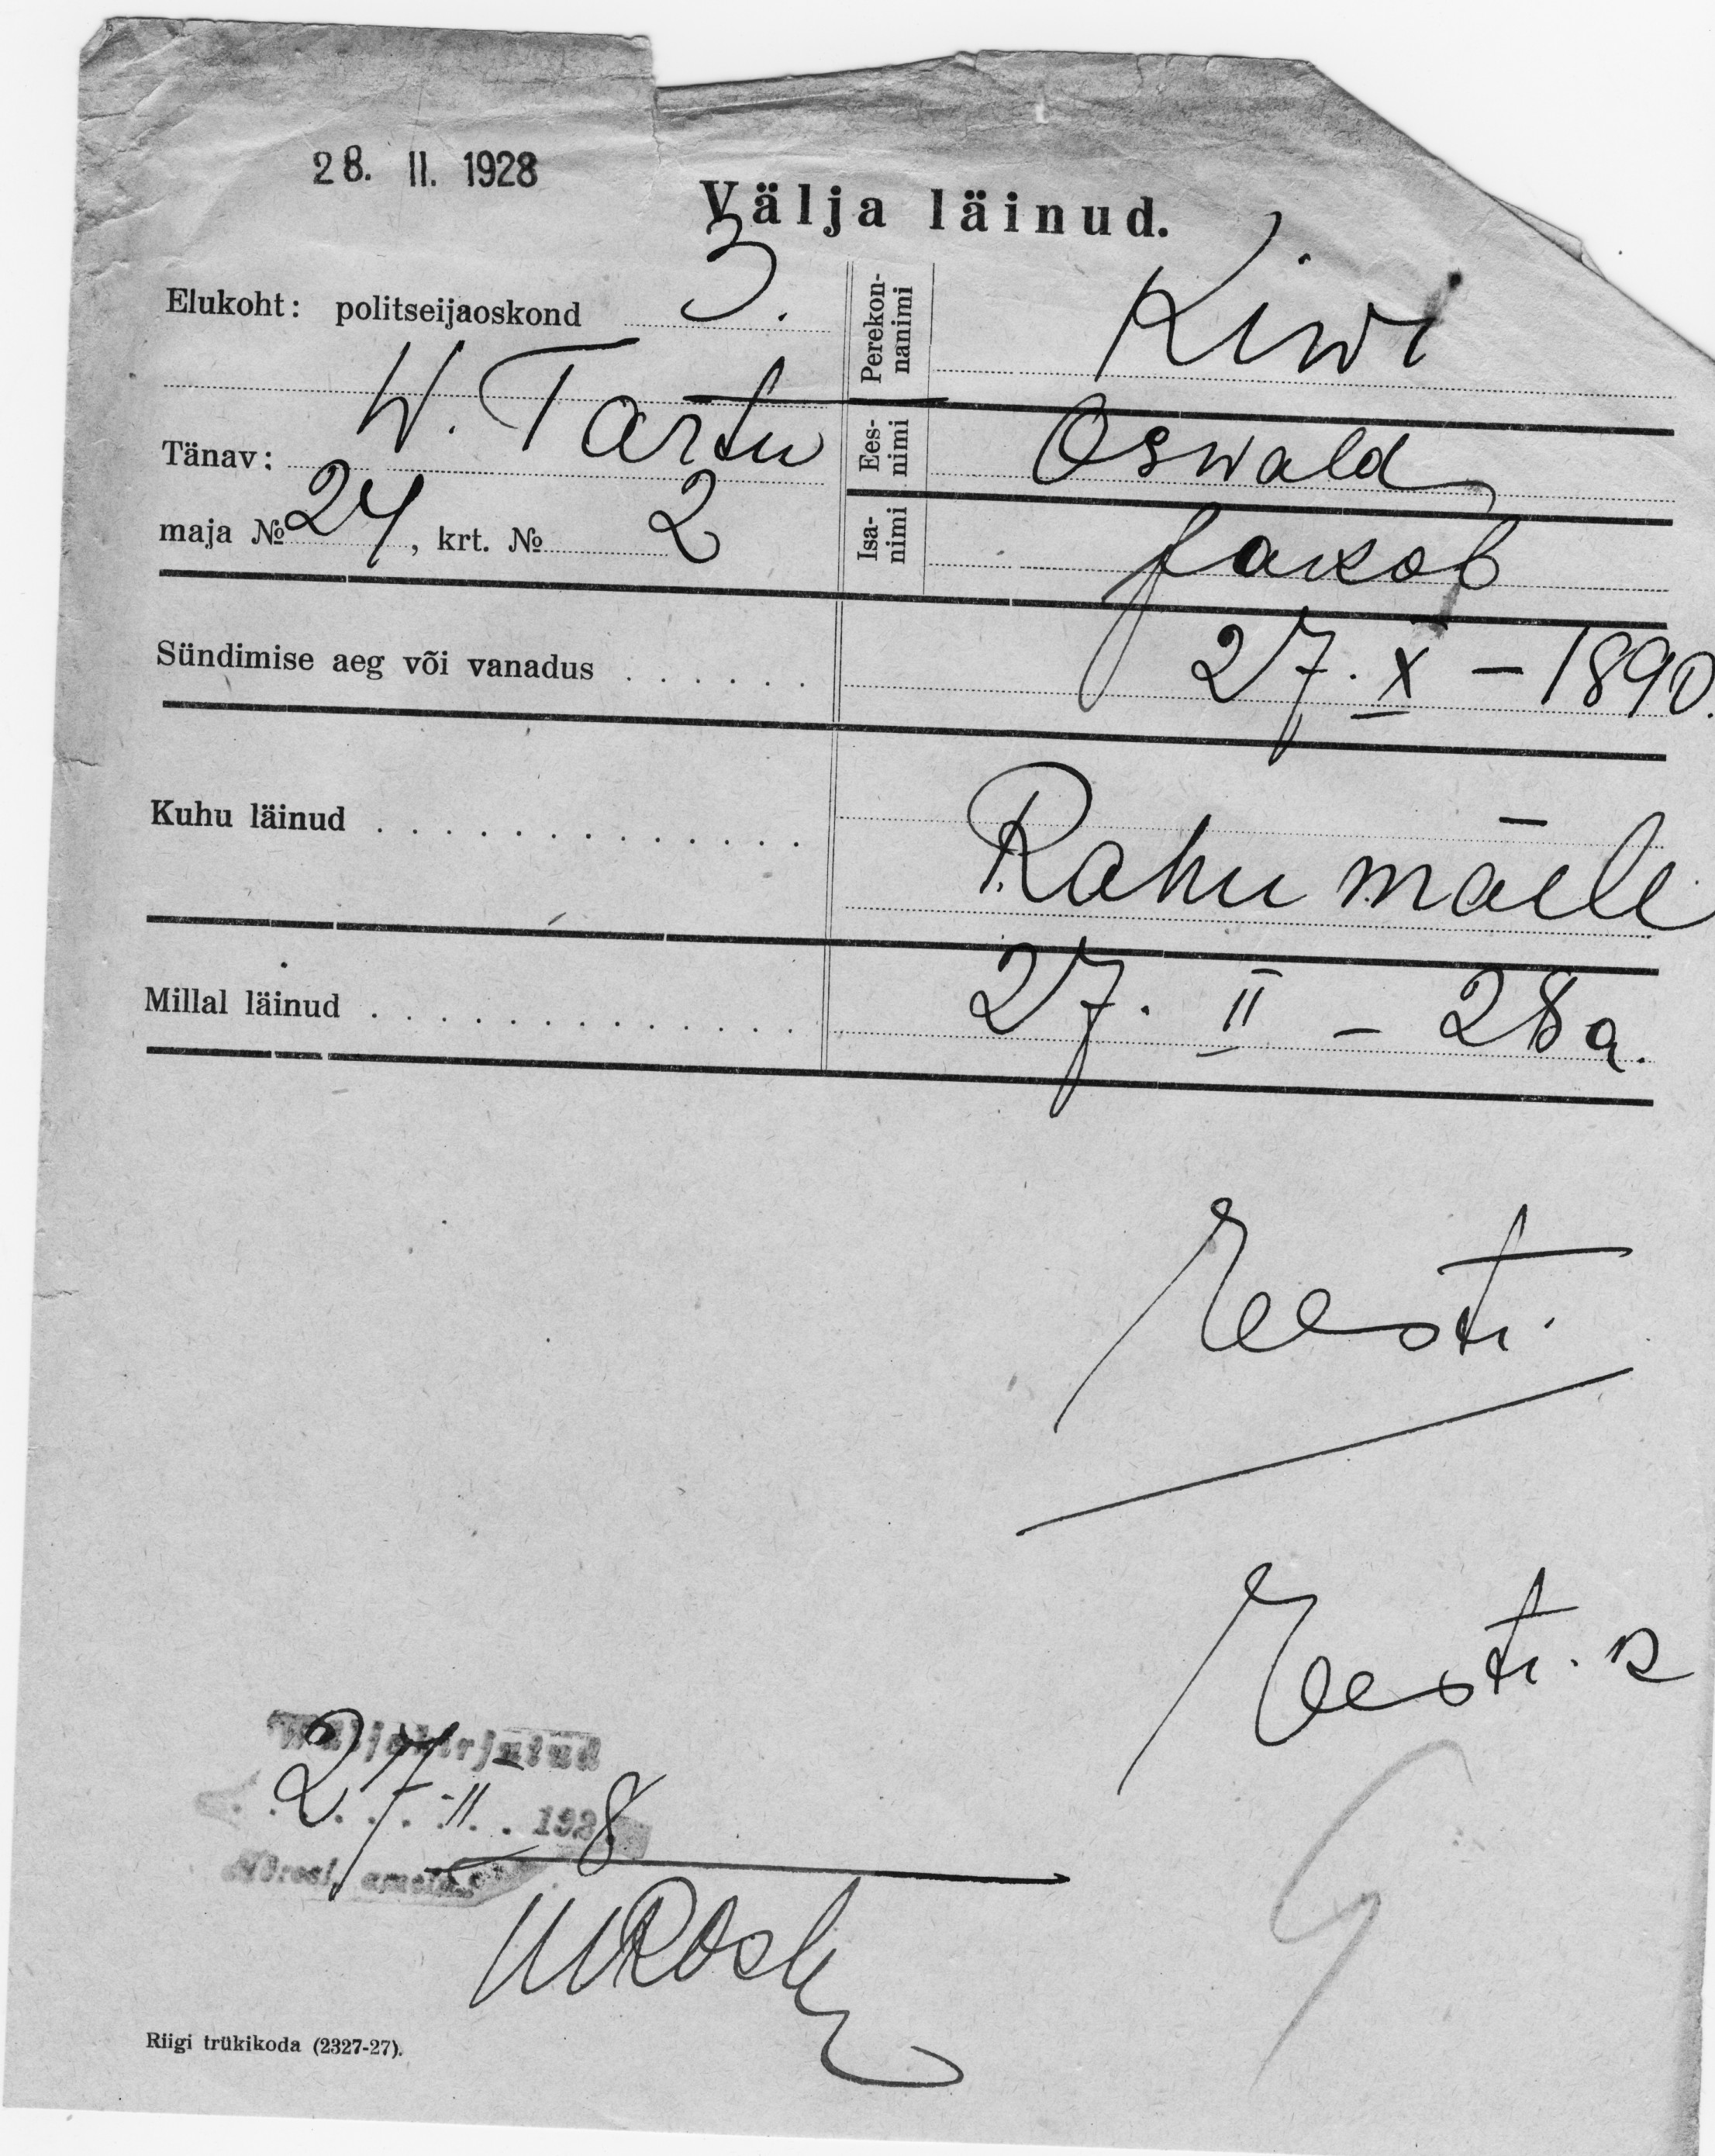 28. II. 1928
Välja läinud.
Elukoht: politseijaoskond 3.
W. Tartu
Tänav:
maja № 24, krt. № 2
Perekon-
nanimi
Kiwi
Ees-
nimi
Oswald
Isa-
nimi
Jakob
Sündimise aeg või vanadus . . . . . . 27. X – 1890.
Kuhu läinud . . . . . . . . . . . . . Rahumäele
Millal läinud . . . . . . . . . . . . . . 27. II – 28 a.
Eesti.
Eesti. k
Wäljakirjutud
27 II 1928
Riigi trükikoda (2327-27).